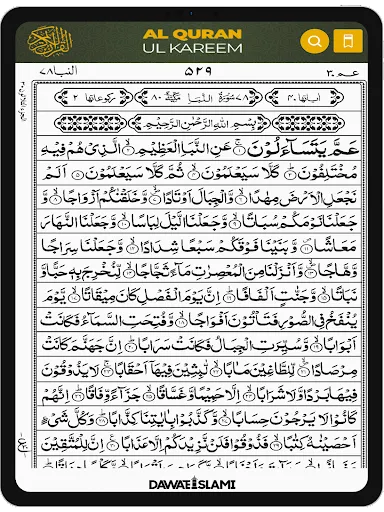 AL QURAN
UL KAREEM
النبا ٧٨
٥٢٩
عـم ٣٠
اٰیاتها ٤٠
٧٨ سُوْرَةُ النَّبَا مَكِّيَّةٌ ٨٠
رکوعاتها ٢
بِسْمِ اللّٰهِ الرَّحْمٰنِ الرَّحِیْمِ
عَمَّ یَتَسَآءَلُوْنَ ۚ۝١ عَنِ النَّبَاِ الْعَظِیْمِ ۙ۝٢ الَّذِیْ هُمْ فِیْهِ
مُخْتَلِفُوْنَ ؕ۝٣ كَلَّا سَیَعْلَمُوْنَ ۙ۝٤ ثُمَّ كَلَّا سَیَعْلَمُوْنَ ۝٥ اَلَمْ
نَجْعَلِ الْاَرْضَ مِهٰدًا ۙ۝٦ وَّ الْجِبَالَ اَوْتَادًا ۪ۙ۝٧ وَّ خَلَقْنٰكُمْ اَزْوَاجًا ۙ۝٨ وَّ
جَعَلْنَا نَوْمَكُمْ سُبَاتًا ۙ۝٩ وَّ جَعَلْنَا الَّیْلَ لِبَاسًا ۙ۝١٠ وَّ جَعَلْنَا النَّهَارَ
مَعَاشًا ۪۝١١ وَ بَنَیْنَا فَوْقَكُمْ سَبْعًا شِدَادًا ۙ۝١٢ وَّ جَعَلْنَا سِرَاجًا
وَّهَّاجًا ۪ۙ۝١٣ وَّ اَنْزَلْنَا مِنَ الْمُعْصِرٰتِ مَآءً ثَجَّاجًا ۙ۝١٤ لِّنُخْرِ جَ بِهٖ حَبًّا وَّ
نَبَاتًا ۙ۝١٥ وَّ جَنّٰتٍ اَلْفَافًا ؕ۝١٦ اِنَّ یَوْمَ الْفَصْلِ كَانَ مِیْقَاتًا ۙ۝١٧ یَّوْمَ
یُنْفَخُ فِی الصُّوْرِ فَتَاْتُوْنَ اَفْوَاجًا ۙ۝١٨ وَّ فُتِحَتِ السَّمَآءُ فَكَانَتْ
اَبْوَابًا ۙ۝١٩ وَّ سُیِّرَتِ الْجِبَالُ فَكَانَتْ سَرَابًا ؕ۝٢٠ اِنَّ جَهَنَّمَ كَانَتْ
مِرْصَادًا ۪ۙ۝٢١ لِّلطَّاغِیْنَ مَاٰبًا ۙ۝٢٢ لّٰبِثِیْنَ فِیْهَاۤ اَحْقَابًا ۚ۝٢٣ لَا یَذُوْقُوْنَ
فِیْهَا بَرْدًا وَّ لَا شَرَابًا ۙ۝٢٤ اِلَّا حَمِیْمًا وَّ غَسَّاقًا ۙ۝٢٥ جَزَآءً وِّفَاقًا ؕ۝٢٦ اِنَّهُمْ
كَانُوْا لَا یَرْجُوْنَ حِسَابًا ۙ۝٢٧ وَّ كَذَّبُوْا بِاٰیٰتِنَا كِذَّابًا ؕ۝٢٨ وَ كُلَّ شَیْءٍ
اَحْصَیْنٰهُ كِتٰبًا ۙ۝٢٩ فَذُوْقُوْا فَلَنْ نَّزِیْدَكُمْ اِلَّا عَذَابًا ۠۝٣٠ اِنَّ لِلْمُتَّقِیْنَ
DAWATEISLAMI